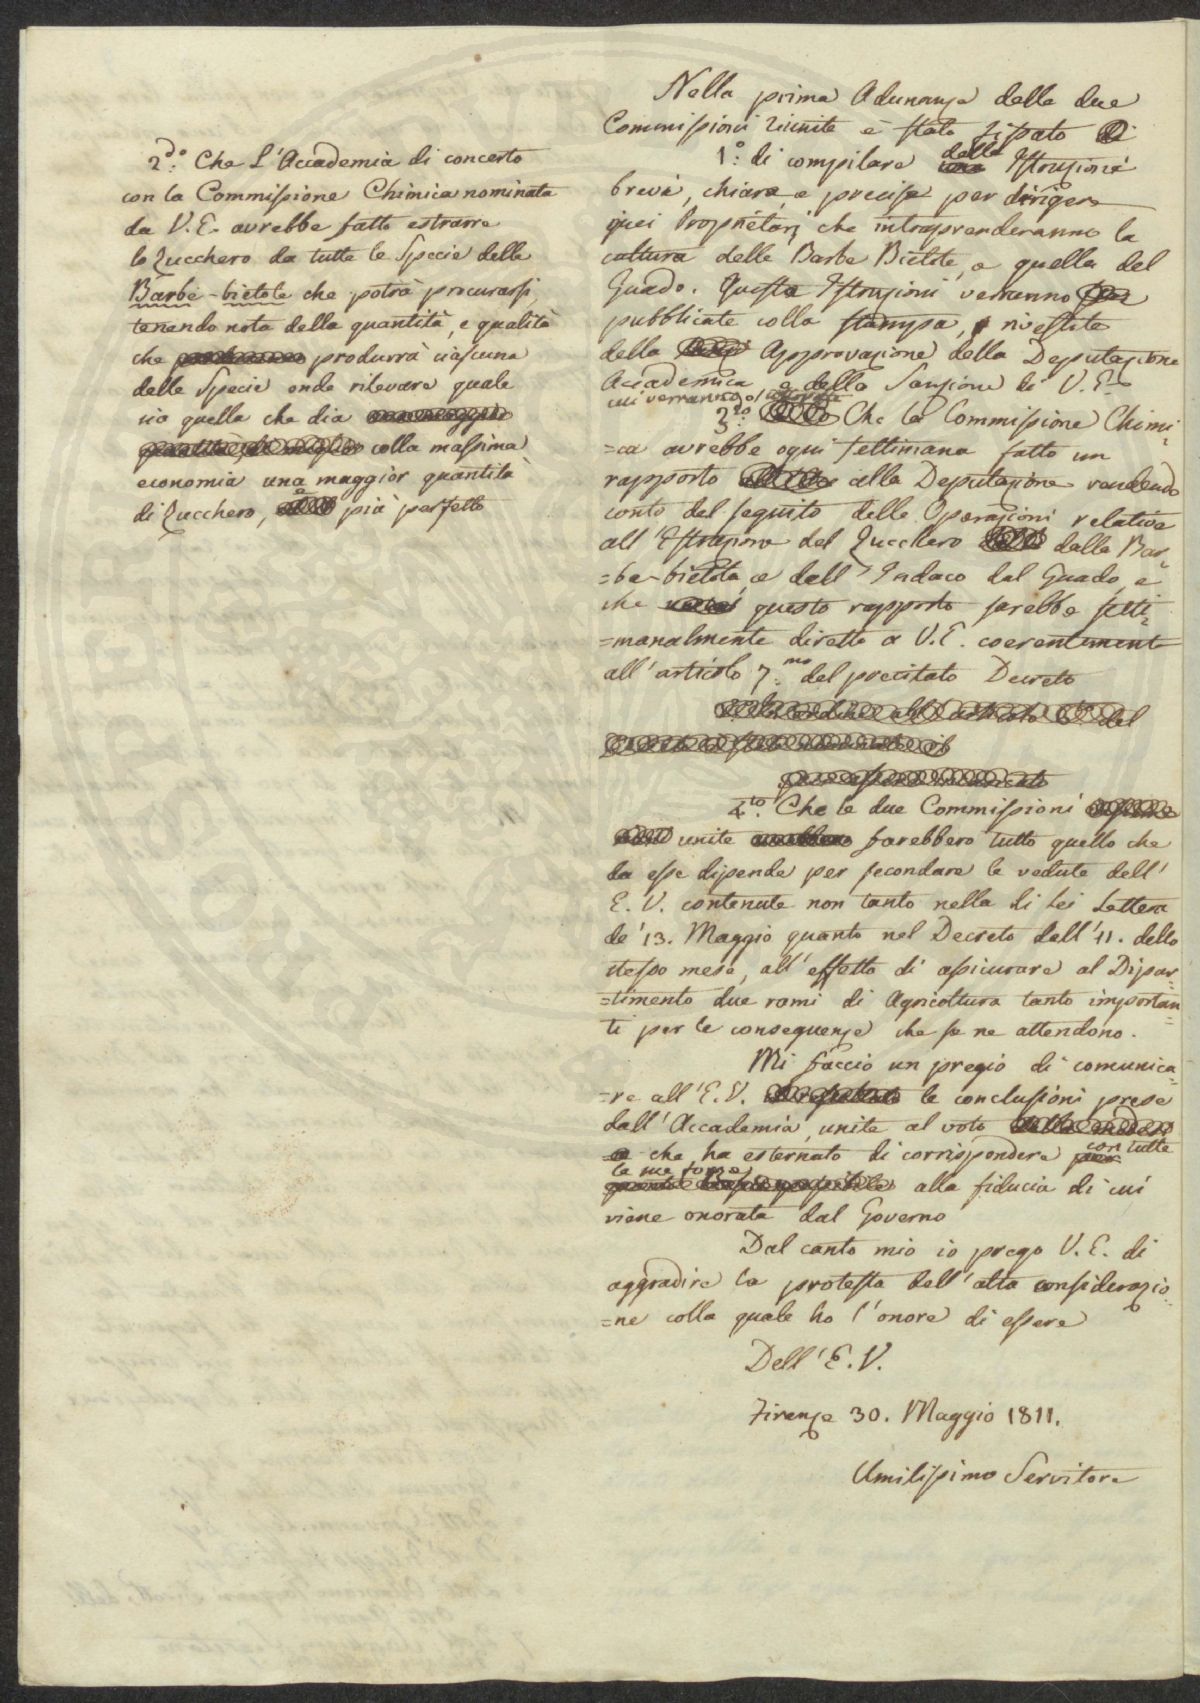 Nella prima Adunanza delle due
Commissioni riunite è stato fissato
1.° di compilare delle Istruzioni
brevi, chiare, e precise per dirigere
quei Proprietarj che intraprenderanno la
cultura delle Barbe Bietole, e quella del
Guado. Queste Istruzioni verranno
pubblicate colla stampa, rivestite
della Approvazione della Deputazione
Accademica, e della Sanzione di V. E.
cui verranno
2.do Che L'Accademia di concerto
con la Commissione Chimica nominata
da V. E. avrebbe fatto estrarre
lo Zucchero da tutte le Specie delle
Barbe-bietole che potrà procurarsi,
tenendo nota della quantità, e qualità
che produrrà ciascuna
delle Specie onde rilevare quale
sia quella che dia
colla massima
economia una maggior quantità
di Zucchero, e più perfetto
3.zo Che la Commissione Chimi=
=ca avrebbe ogni settimana fatto un
rapporto alla Deputazione rendendo
conto del seguito delle Operazioni relative
all'Estrazione del Zucchero dalla Bar=
=ba-bietola, e dell'Indaco dal Guado, e
che questo rapporto sarebbe setti=
=manalmente diretto a V. E. coerentemente
all'articolo 7.mo del precitato Decreto
4.to Che le due Commissioni
unite farebbero tutto quello che
da esse dipende per secondare le vedute dell'
E. V. contenute non tanto nella di Lei Lettera
de' 13. Maggio quanto nel Decreto dell'11. dello
stesso mese, all'effetto di assicurare al Dipar=
=timento due rami di Agricoltura tanto importan=
ti per le conseguenze che se ne attendono.
Mi faccio un pregio di comunica=
=re all'E. V. le conclusioni prese
dall'Accademia, unite al voto
che ha esternato di corrispondere con tutte
le sue forze
alla fiducia di cui
viene onorata dal Governo
Dal canto mio io prego V. E. di
aggradire la protesta dell'alta considerazio=
=ne colla quale ho l'onore di essere
Dell'E. V.
Firenze 30. Maggio 1811.
Umilissimo Servitore